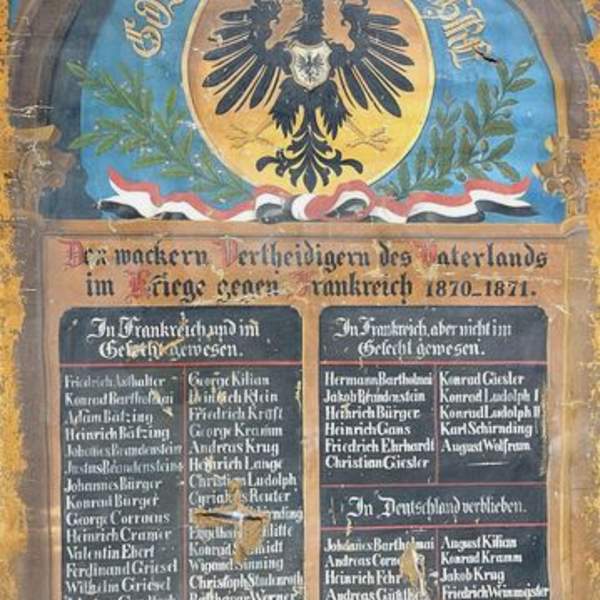 Den wackern Vertheidigern des Vaterlands
im Kriege gegen Frankreich 1870-1871.
In Frankreich und im
Gefecht gewesen.
Friedrich Axthalter
Konrad Bartholmai
Adam Bätzing
Heinrich Bätzing
Johannes Brandenstein
Justus Brandenstein
Johannes Bürger
Konrad Bürger
George Corraeus
Heinrich Cramer
Valentin Ebert
Ferdinand Griesel
Wilhelm Griesel
George Kilian
Heinrich Klein
Friedrich Kraft
George Kramm
Andreas Krug
Heinrich Lange
Christian Ludolph
Cyriakus Reuter
Konrad
Wigand
Christoph
Balthasar Werner
In Frankreich, aber nicht im
Gefecht gewesen.
Hermann Bartholmai
Jakob Brandenstein
Heinrich Bürger
Heinrich Gans
Friedrich Ehrhardt
Christian Giesler
Konrad Giesler
Konrad Ludolph I
Konrad Ludolph II
Karl Schirnding
August Wolfram
In Deutschland verblieben.
Johannes Bartholmai
Andreas
Heinrich Fehr
Andreas
August Kilian
Konrad Kramm
Jakob Krug
Friedrich Winmeister